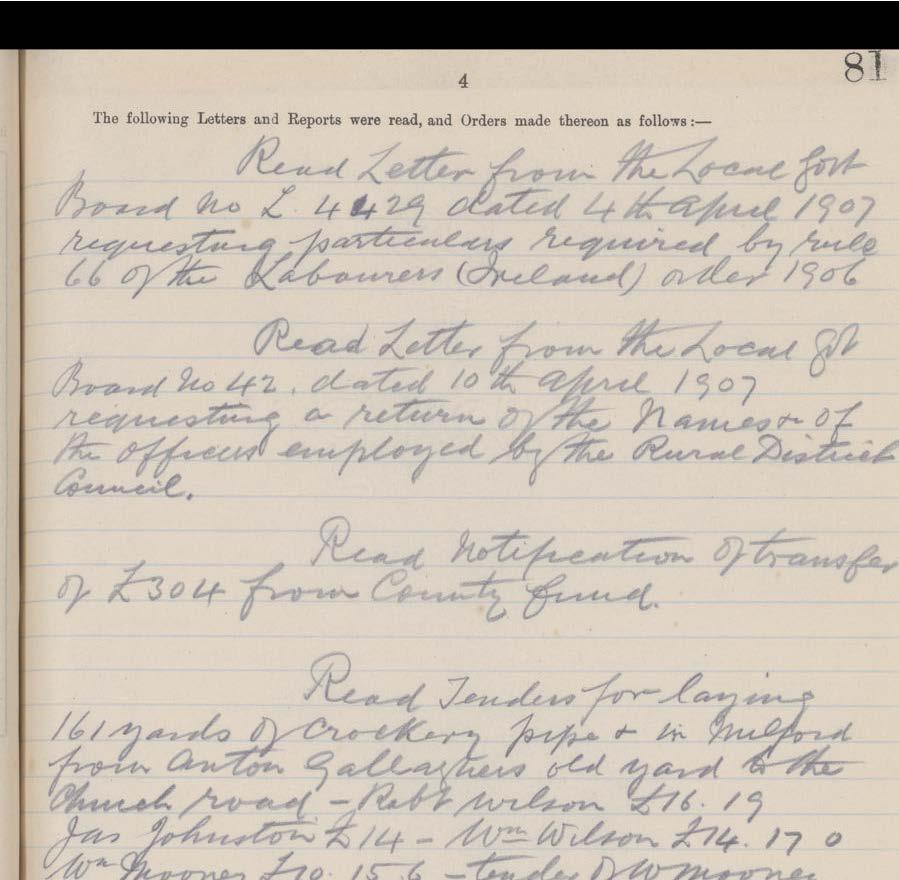 81
4
The following Letters and Reports were read, and Orders made thereon as follows :—
Read Letter from the Local Govt
Board No L. 4429 dated 4th April 1907
requesting particulars required by rule
66 of the Labourers (Ireland) order 1906
Read Letter from the Local Gvt
Board No 42. dated 10th April 1907
requesting a return of the Names & of
the officers employed by the Rural District
Council.
Read Notification of transfer
of £304 from County fund.
Read Tenders for laying
161 yards of Crockery pipe & in Milford
from Anton Gallaghers old yard to the
Church road – Robt Wilson £16. 19
Jas Johnston £14 – Wm Wilson £14. 17 0
Wm Mooney £10. 15 6 – tender of W Mooney